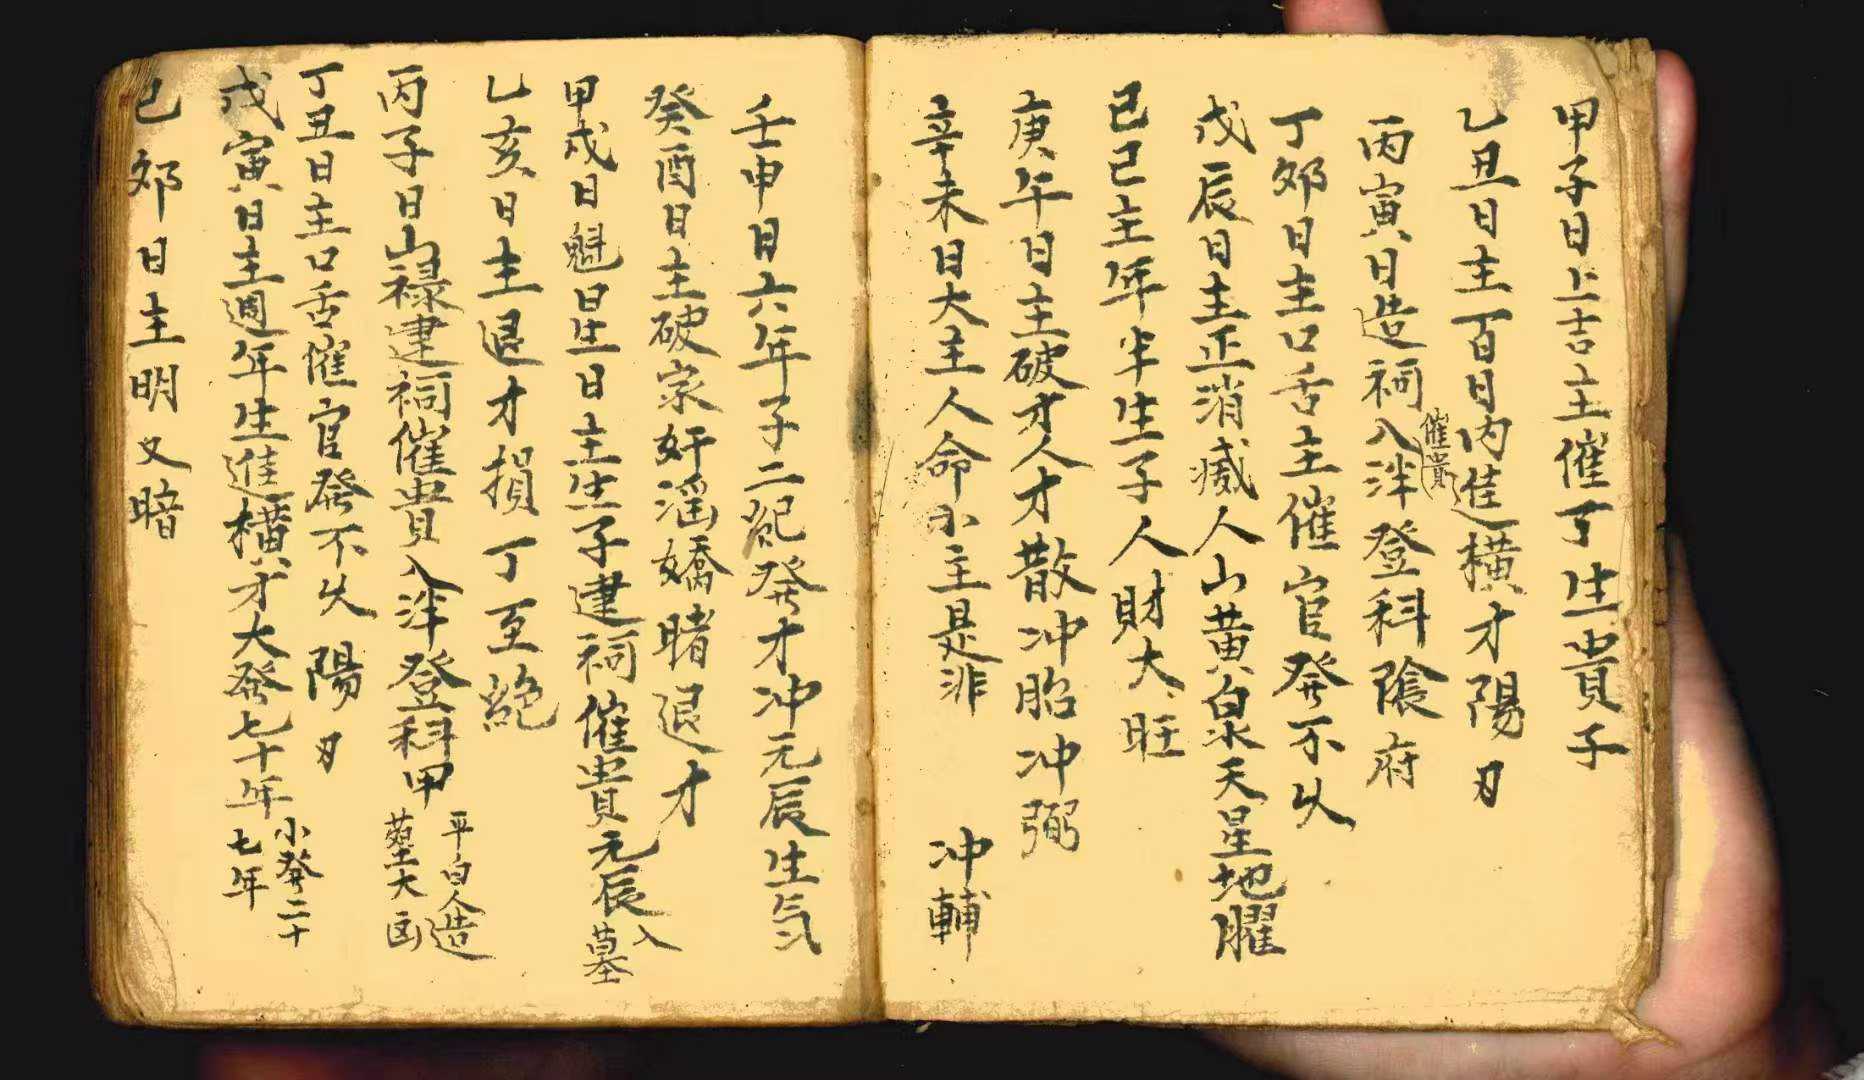 甲子日上吉主催丁生貴子
乙丑日主百日内進橫才陽刃
丙寅日造祠入泮登科陰府
催貴
丁夘日主口舌主催官發不久
戊辰日主正消滅人山黃泉天星地曜
己巳主年半生子人財大旺
庚午日主破才人才散冲胎冲弼
辛未日大主人命小主是非 冲輔
壬申日六年子二紀發才冲元辰生気
癸酉日主破家奸滛嬌賭退才
甲戌日魁星日主生子建祠催貴元辰入墓
乙亥日主退才損丁至絕
丙子日山禄建祠催貴入泮登科甲 平白人造塟大凶
丁丑日主口舌催官發不久陽刃
戊寅日主週年生進橫才大發七十年 小發二十七年
己夘日主明又暗